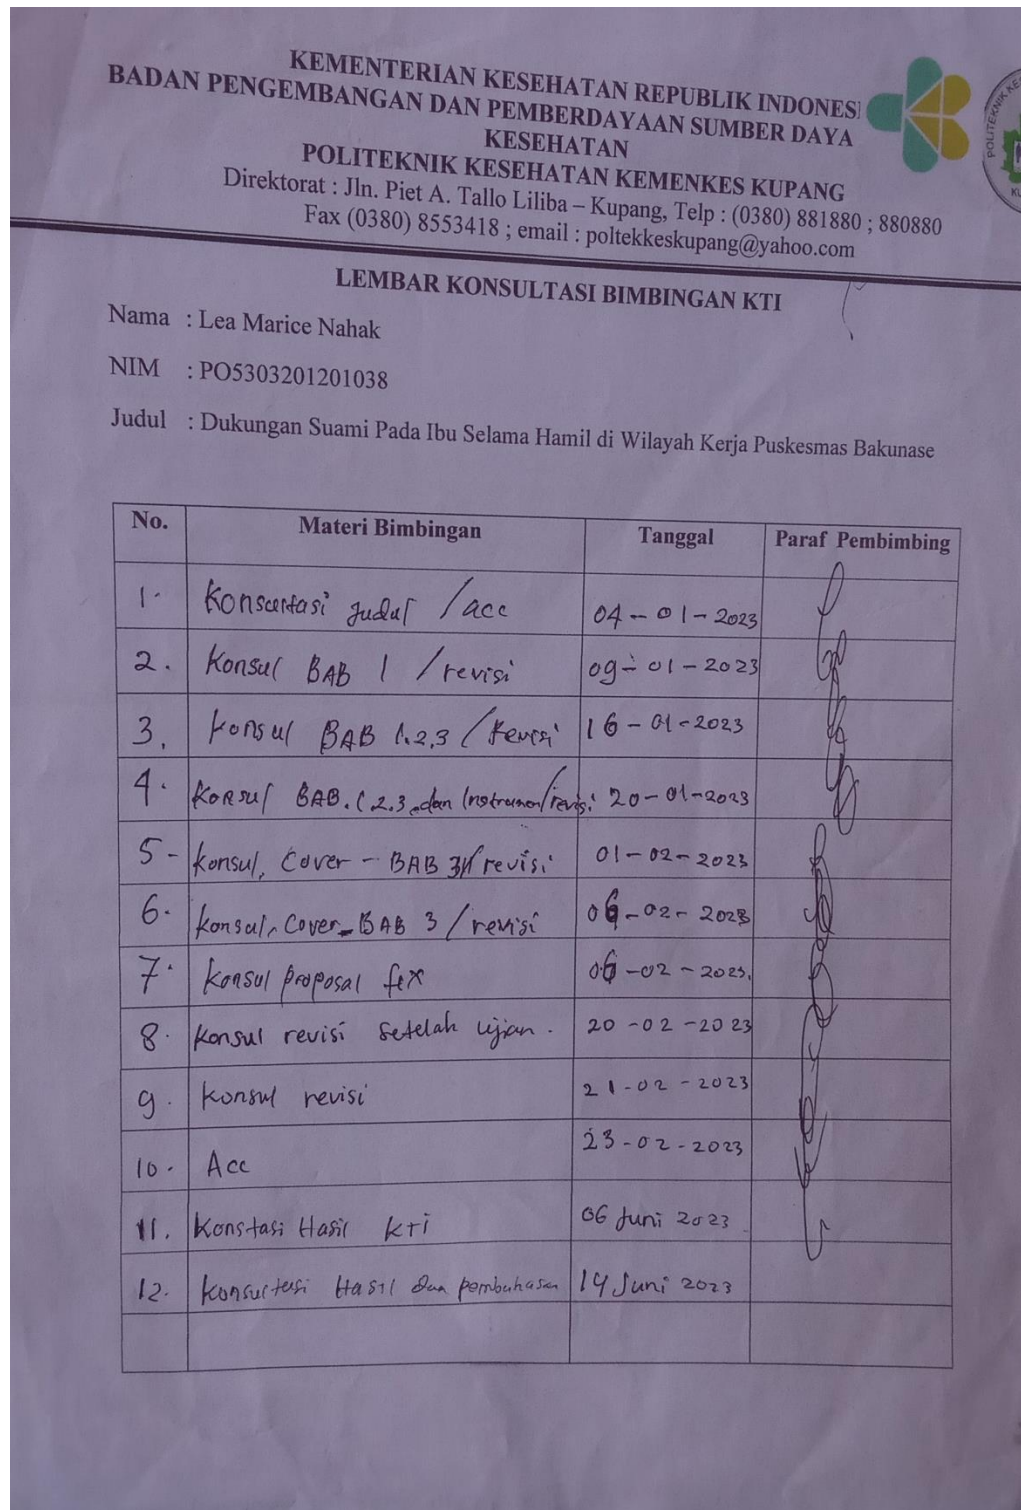 KEMENTERIAN KESEHATAN REPUBLIK INDONESI
BADAN PENGEMBANGAN DAN PEMBERDAYAAN SUMBER DAYA
KESEHATAN
POLITEKNIK KESEHATAN KEMENKES KUPANG
Direktorat : Jln. Piet A. Tallo Liliba – Kupang, Telp : (0380) 881880 ; 880880
Fax (0380) 8553418 ; email : poltekkeskupang@yahoo.com
LEMBAR KONSULTASI BIMBINGAN KTI
Nama : Lea Marice Nahak
NIM : PO5303201201038
Judul : Dukungan Suami Pada Ibu Selama Hamil di Wilayah Kerja Puskesmas Bakunase
No. Materi Bimbingan Tanggal Paraf Pembimbing
1. Konsultasi Judul / acc 04-01-2023
2. Konsul BAB 1 / revisi 09-01-2023
3. Konsul BAB 1.2.3 / Revisi 16-01-2023
4. Konsul BAB. 1.2.3. dan Instrumen/revisi 20-01-2023
5- Konsul, Cover - BAB 3 / revisi 01-02-2023
6. Konsul, Cover - BAB 3 / revisi 06-02-2023
7. Konsul proposal fix 06-02-2023.
8. Konsul revisi setelah ujian. 20-02-2023
9. Konsul revisi 21-02-2023
10. Acc 23-02-2023
11. Konstasi Hasil kti 06 Juni 2023
12. Konsultasi Hasil dan pembahasan 14 Juni 2023